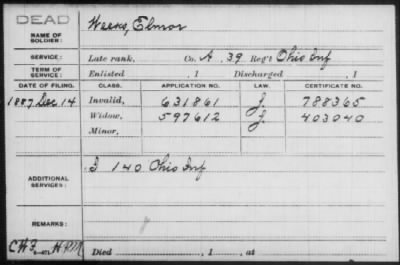 DEAD
NAME OF SOLDIER: Weeks, Elmor
SERVICE: Late rank, Co. A, 39 Reg't Ohio Inf
TERM OF SERVICE: Enlisted , 1 Discharged , 1
DATE OF FILING. CLASS. APPLICATION NO. LAW. CERTIFICATE NO.
1887 Dec 14 Invalid, 631861 J. 788365
Widow, 597612 J. 403040
Minor,
ADDITIONAL SERVICES: I 140 Ohio Inf
REMARKS:
Died , 1 , at